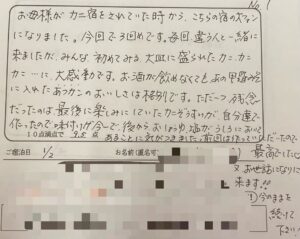 No.
お母様がカニ宿をされていた時から、こちらの宿のズワイ
になりました。今回で3回めです。毎回違う人と一緒に
来ましたが、みんな初めてみる大皿に盛られたカニ.カニ.
カニ…に、大感激です。お酒が飲めなくてもあの甲羅の
に入れたあつかんのおいしさは格別です。ただ一つ残念
だったのは最後に楽しみにしていたカニぞうすいが、自分達で
作ったので味付けが今一で、後からおしょうゆ、塩がうしろにおいて
10点満点で 9.5点 あることに気がつきました。前回は作ってい
ただいたので
最高でした
ご宿泊日 1/2 お名前(匿名可)
又お世話になりに
来ます!!
今のままを
続けて
下さい!